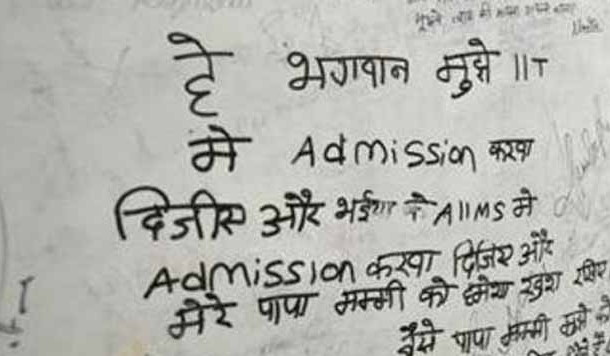 हे भगवान मुझे IIT
मे Admission करवा
दिजीए और भईया को AIIMS मे
Admission करवा दिजिए और
मेरे पापा मम्मी को हमेशा खुश रखिए
पापा मम्मी